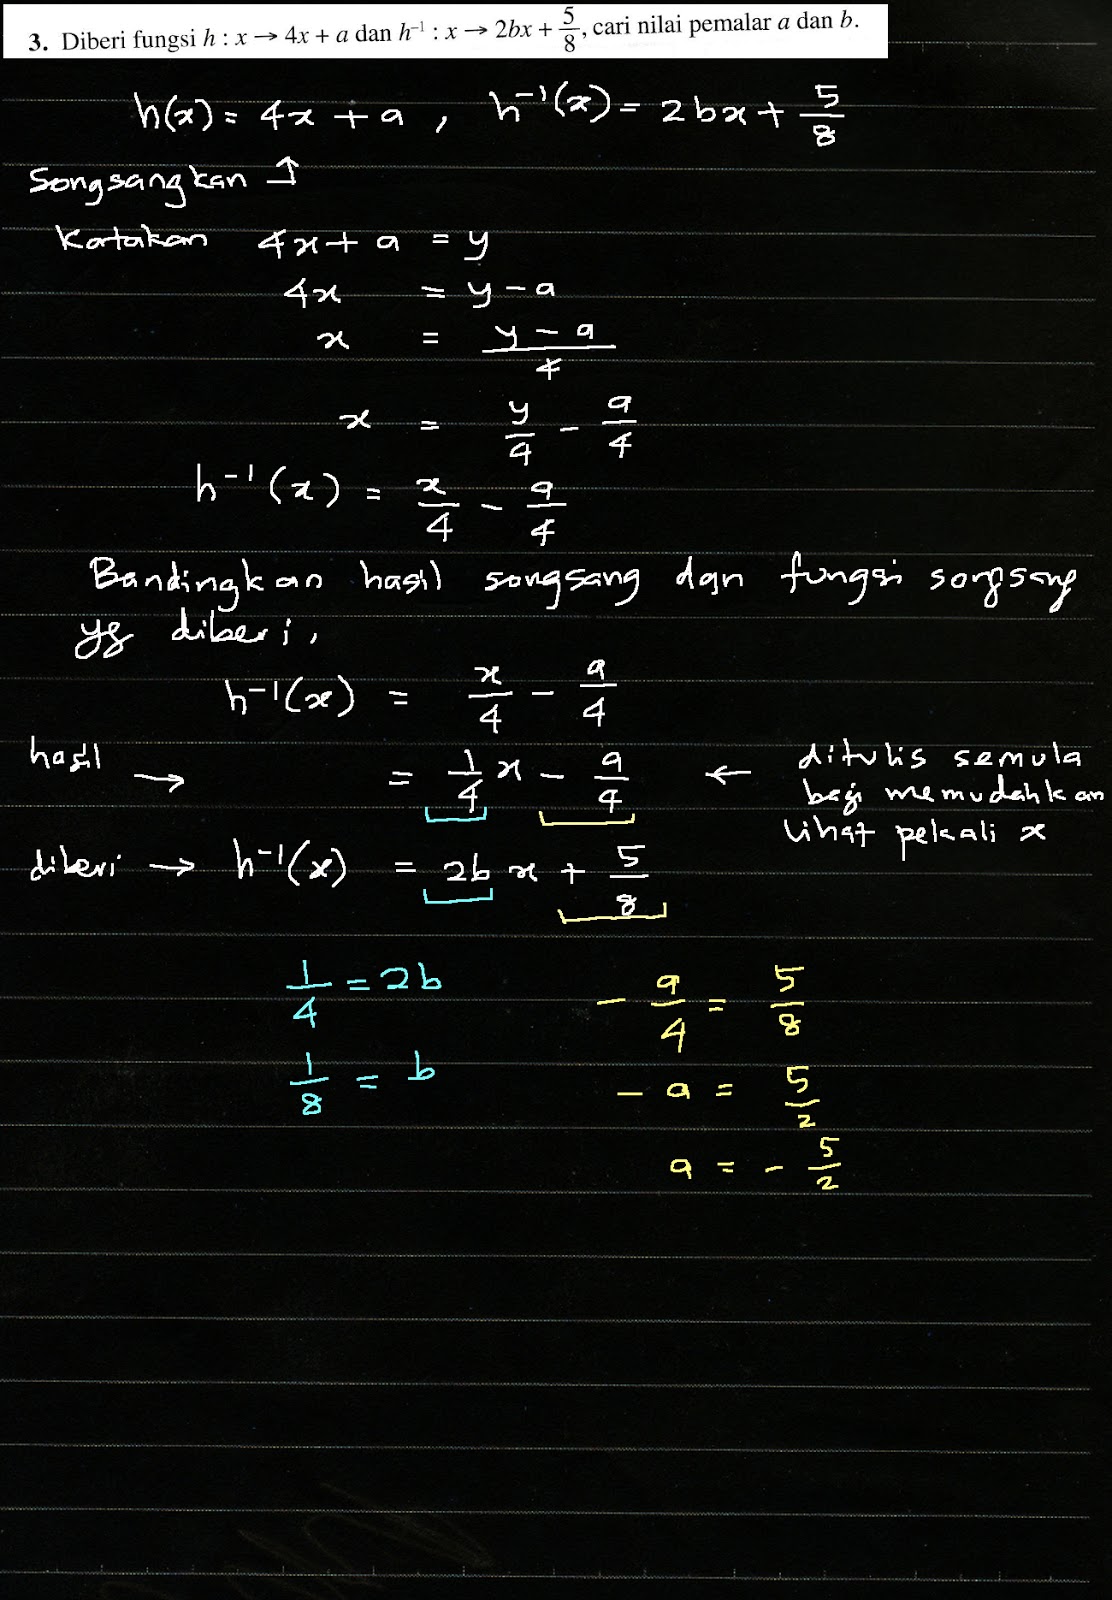 3. Diberi fungsi h : x → 4x + a dan h⁻¹ : x → 2bx + 5/8, cari nilai pemalar a dan b.
h(x) = 4x + a , h⁻¹(x) = 2bx + 5/8
Songsangkan ↑
Katakan 4x + a = y
4x = y - a
x = (y - a)/4
x = y/4 - a/4
h⁻¹(x) = x/4 - a/4
Bandingkan hasil songsang dan fungsi songsang
yg diberi,
h⁻¹(x) = x/4 - a/4
hasil → = 1/4 x - a/4 ← ditulis semula
bagi memudahkan
lihat pekali x
diberi → h⁻¹(x) = 2b x + 5/8
1/4 = 2b
1/8 = b
- a/4 = 5/8
- a = 5/2
a = - 5/2